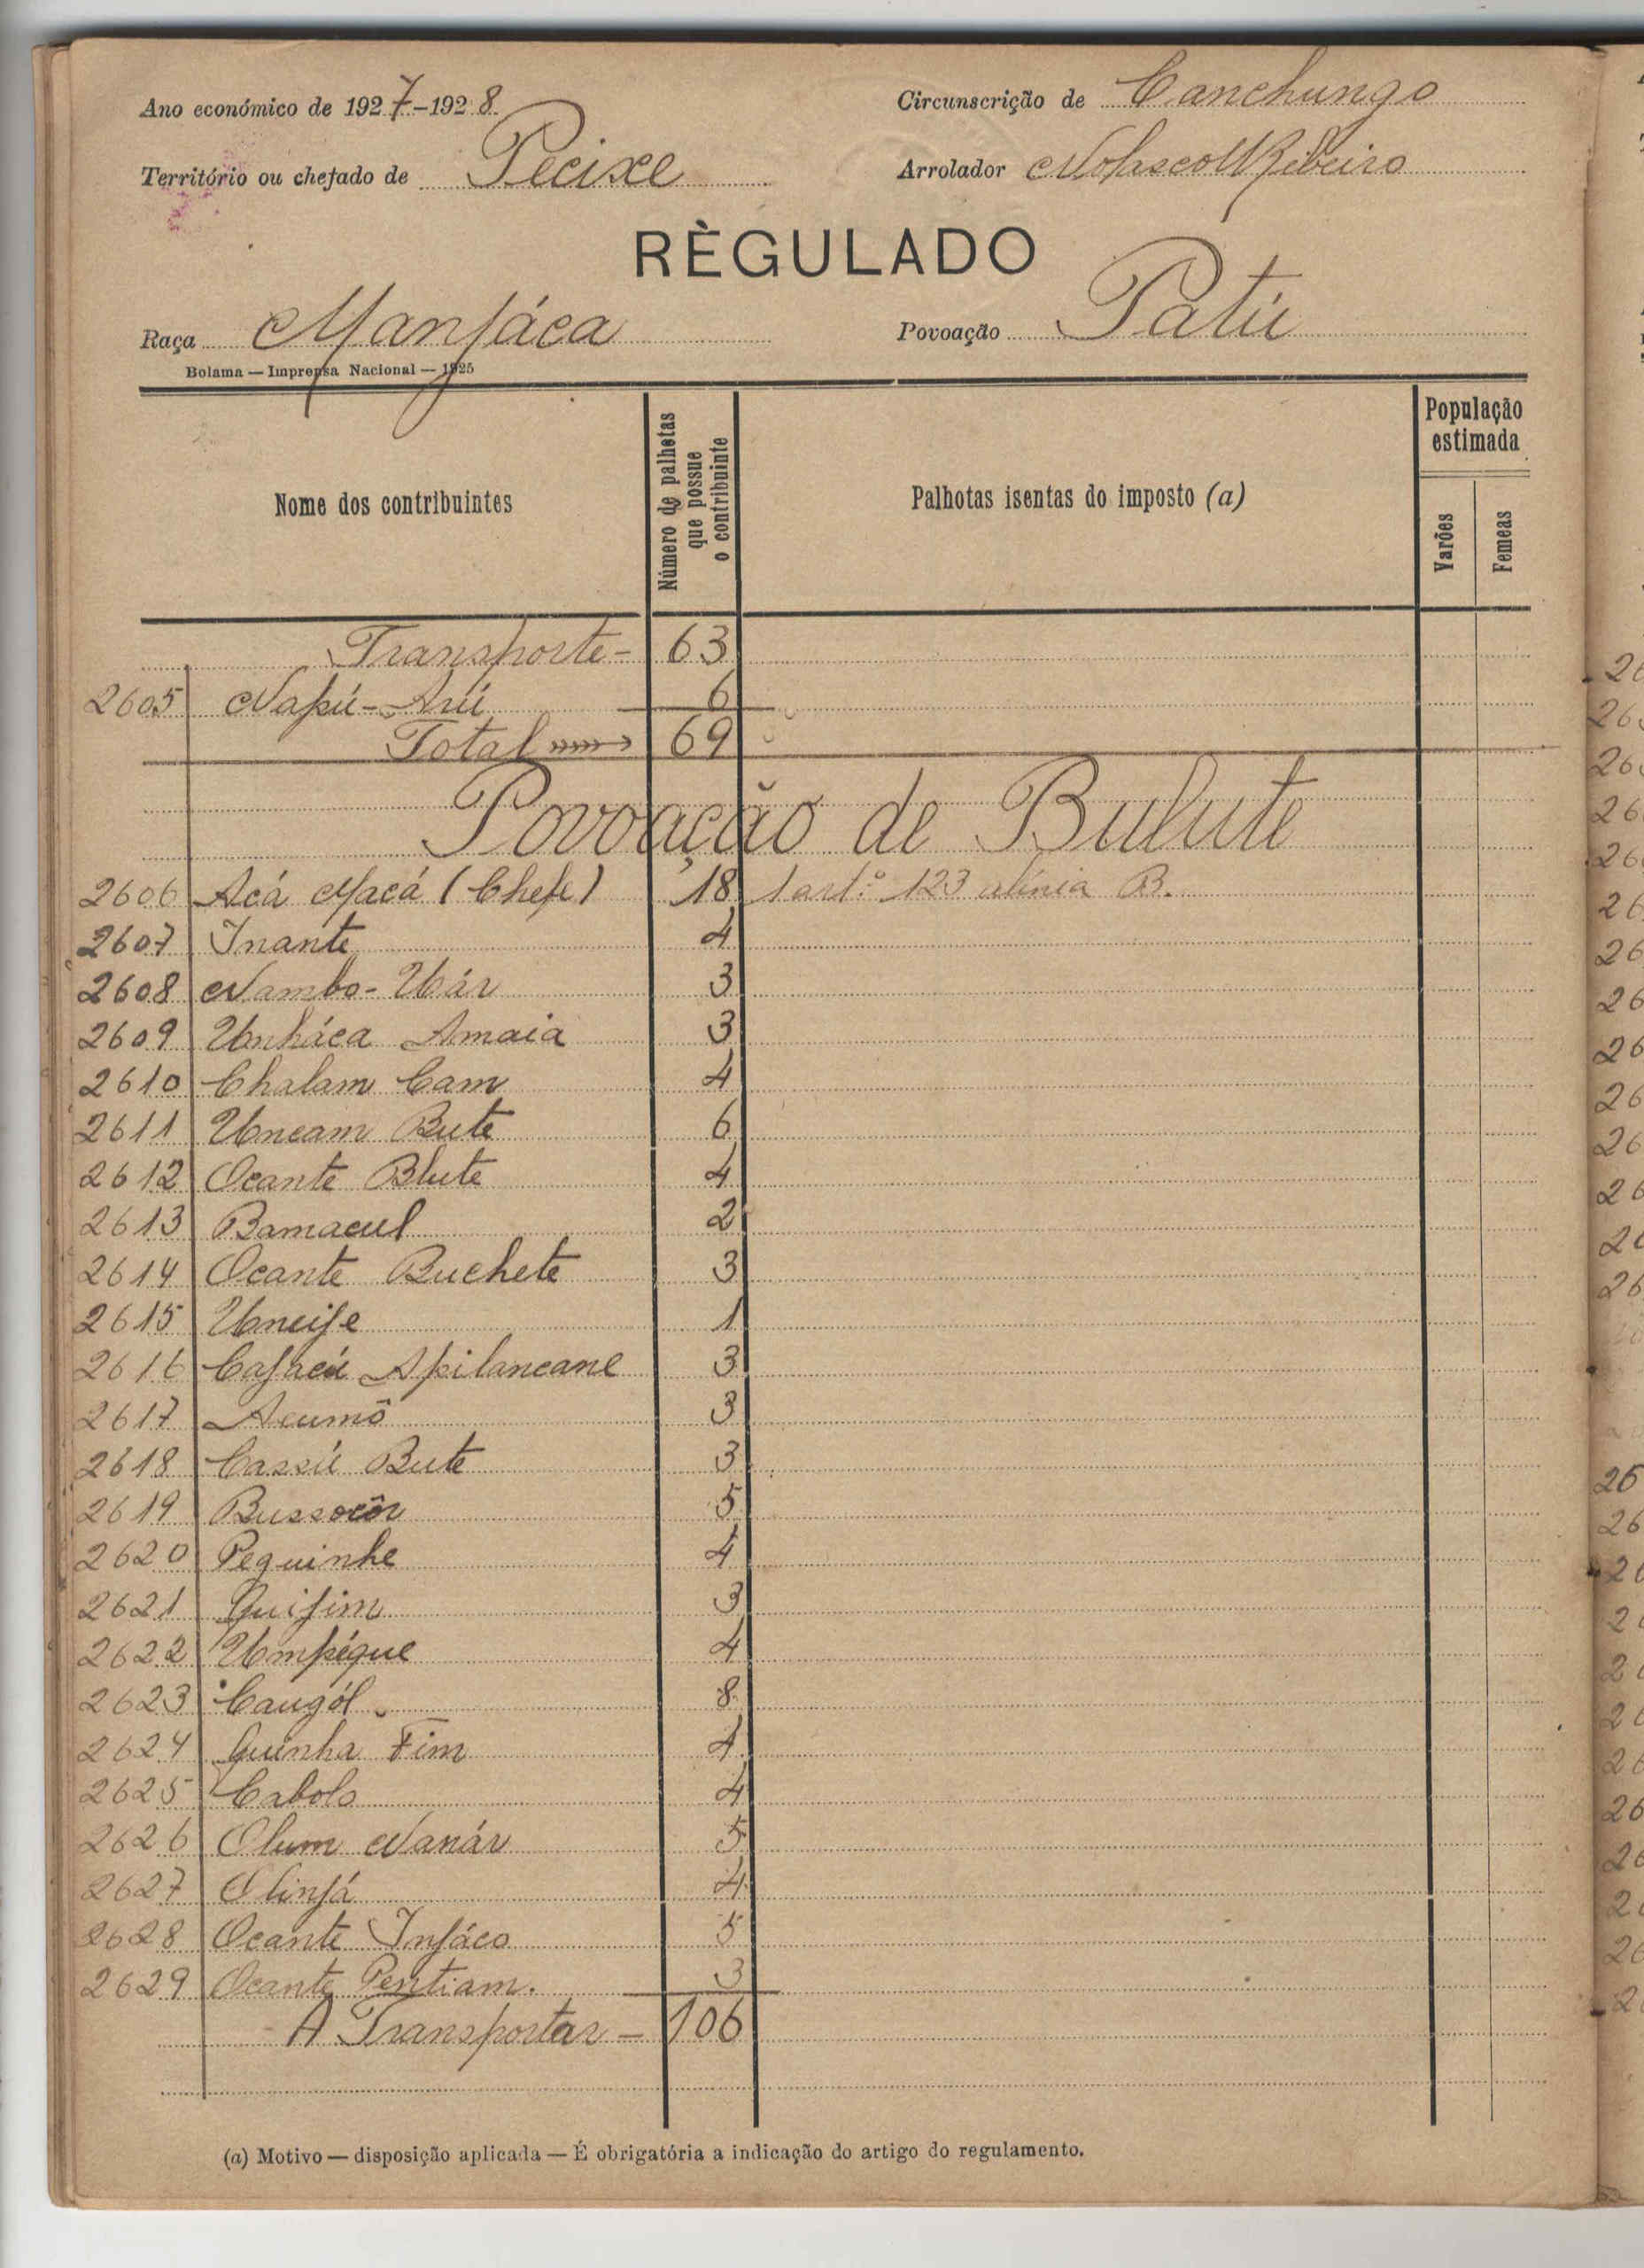 Ano económico de 1927-1928
Circunscrição de Canchungo
Território ou chefado de Pecixe
Arrolador Nolasco Ribeiro
RÈGULADO
Raça Manjáca
Povoação Patú
Bolama — Imprensa Nacional — 1925
Nome dos contribuintes
Número de palhetas que possue o contribuinte
Palhotas isentas do imposto (a)
População estimada
Varões
Femeas
Transporte - 63
2605 Napú-Arú 6
Total 69
Povoação de Bulute
2606 Acá Macá (Chefe) 18 1 art.º 123 alínia B.
2607 Inante 4
2608 Nambo-Uár 3
2609 Unháca Amaia 3
2610 Chalam Cam 4
2611 Uncam Bute 6
2612 Ocante Blute 4
2613 Bamacul 2
2614 Ocante Buchete 3
2615 Uncije 1
2616 Cajacú Apilancane 3
2617 Acumô 3
2618 Cassú Bute 3
2619 Bussocôr 5
2620 Pequinhe 4
2621 Quifim 3
2622 Umpéque 4
2623 Caugól 8
2624 Quinha Fim 4
2625 Cabolo 4
2626 Olum Nanár 5
2627 Olinjá 4
2628 Ocante Injáco 5
2629 Ocante Pentiam. 3
A Transportar - 106
(a) Motivo — disposição aplicada — É obrigatória a indicação do artigo do regulamento.